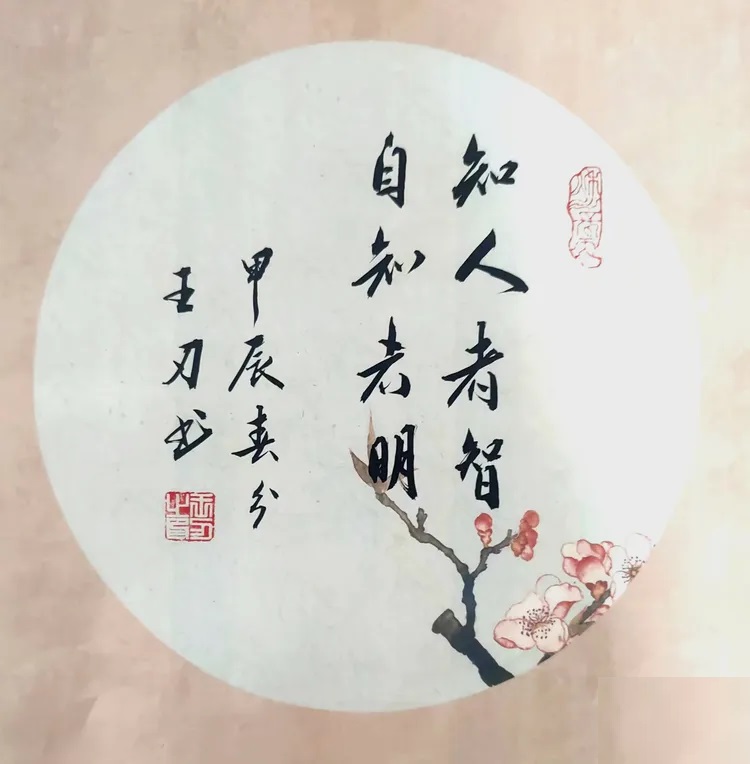 知人者智
自知者明
甲辰春分
王刃书